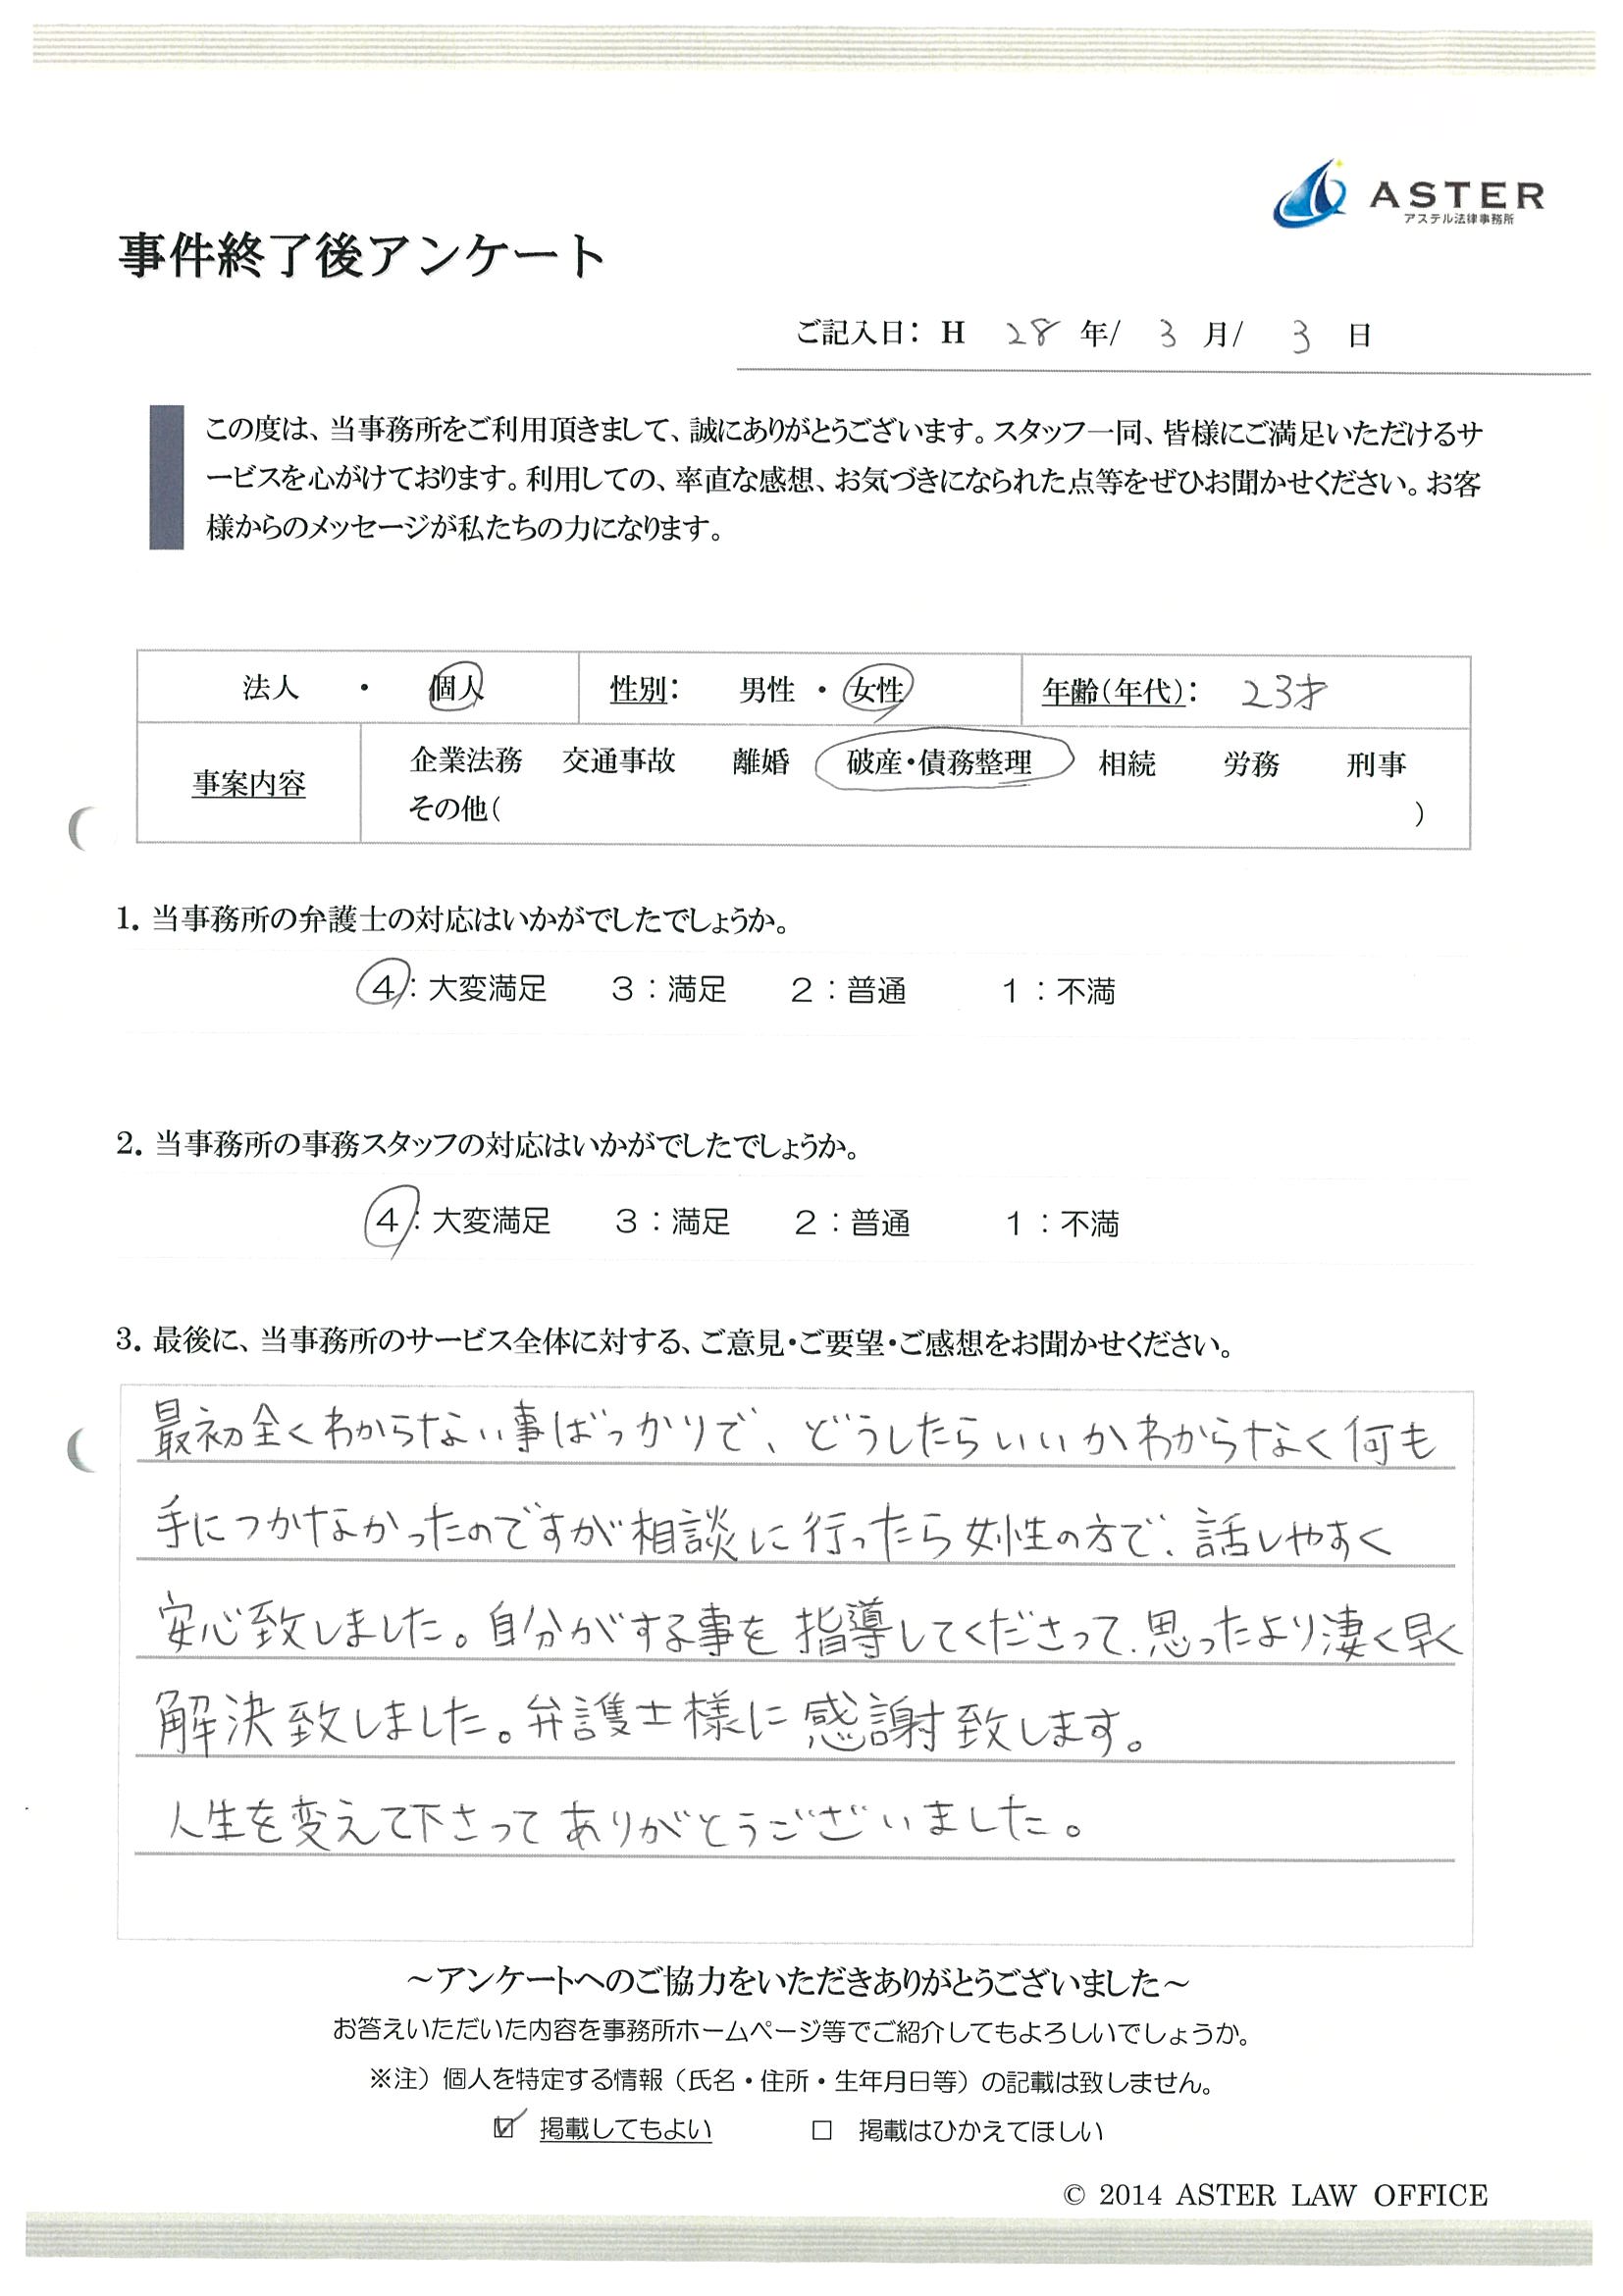 ASTER
アステル法律事務所
事件終了後アンケート
ご記入日： H 28 年/ 3 月/ 3 日
この度は、当事務所をご利用頂きまして、誠にありがとうございます。スタッフ一同、皆様にご満足いただけるサ
ービスを心がけております。利用しての、率直な感想、お気づきになられた点等をぜひお聞かせください。お客
様からのメッセージが私たちの力になります。
法人 ・ 個人 性別： 男性 ・ 女性 年齢（年代）： 23才
事案内容 企業法務 交通事故 離婚 破産・債務整理 相続 労務 刑事
その他（ ）
1. 当事務所の弁護士の対応はいかがでしたでしょうか。
4：大変満足 3：満足 2：普通 1：不満
2. 当事務所の事務スタッフの対応はいかがでしたでしょうか。
4：大変満足 3：満足 2：普通 1：不満
3. 最後に、当事務所のサービス全体に対する、ご意見・ご要望・ご感想をお聞かせください。
最初全くわからない事ばっかりで、どうしたらいいかわからなく何も
手につかなかったのですが相談に行ったら女性の方で、話しやすく
安心致しました。自分がする事を指導してくださって、思ったより凄く早く
解決致しました。弁護士様に感謝致します。
人生を変えて下さってありがとうございました。
～アンケートへのご協力をいただきありがとうございました～
お答えいただいた内容を事務所ホームページ等でご紹介してもよろしいでしょうか。
※注）個人を特定する情報（氏名・住所・生年月日等）の記載は致しません。
☑ 掲載してもよい □ 掲載はひかえてほしい
© 2014 ASTER LAW OFFICE